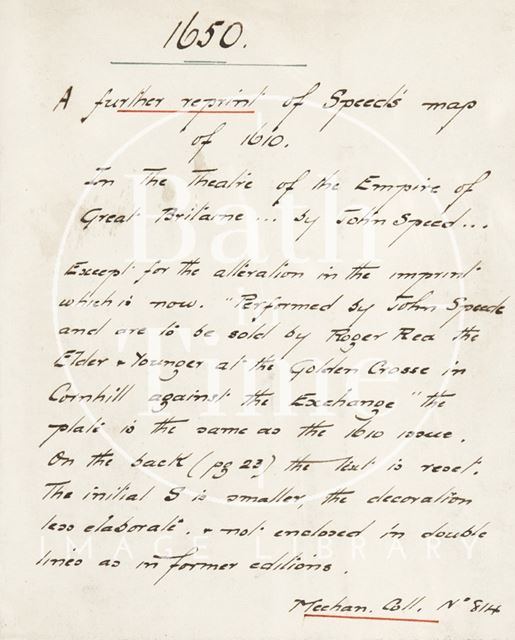 1650.
A further reprint of Speeds map
of 1610.
In The Theatre of the Empire of
Great Britaine ... by John Speed ...
Except for the alteration in the imprint
which is now. "Performed by John Speede
and are to be sold by Roger Rea the
Elder & Younger at the Golden Crosse in
Cornhill against the Exchange" the
plate is the same as the 1610 issue.
On the back (pg 23) the text is reset.
The initial S is smaller, the decoration
less elaborate. & not enclosed in double
lines as in former editions.
Meehan. Coll. No 814
Bath
in
Time
IMAGE LIBRARY